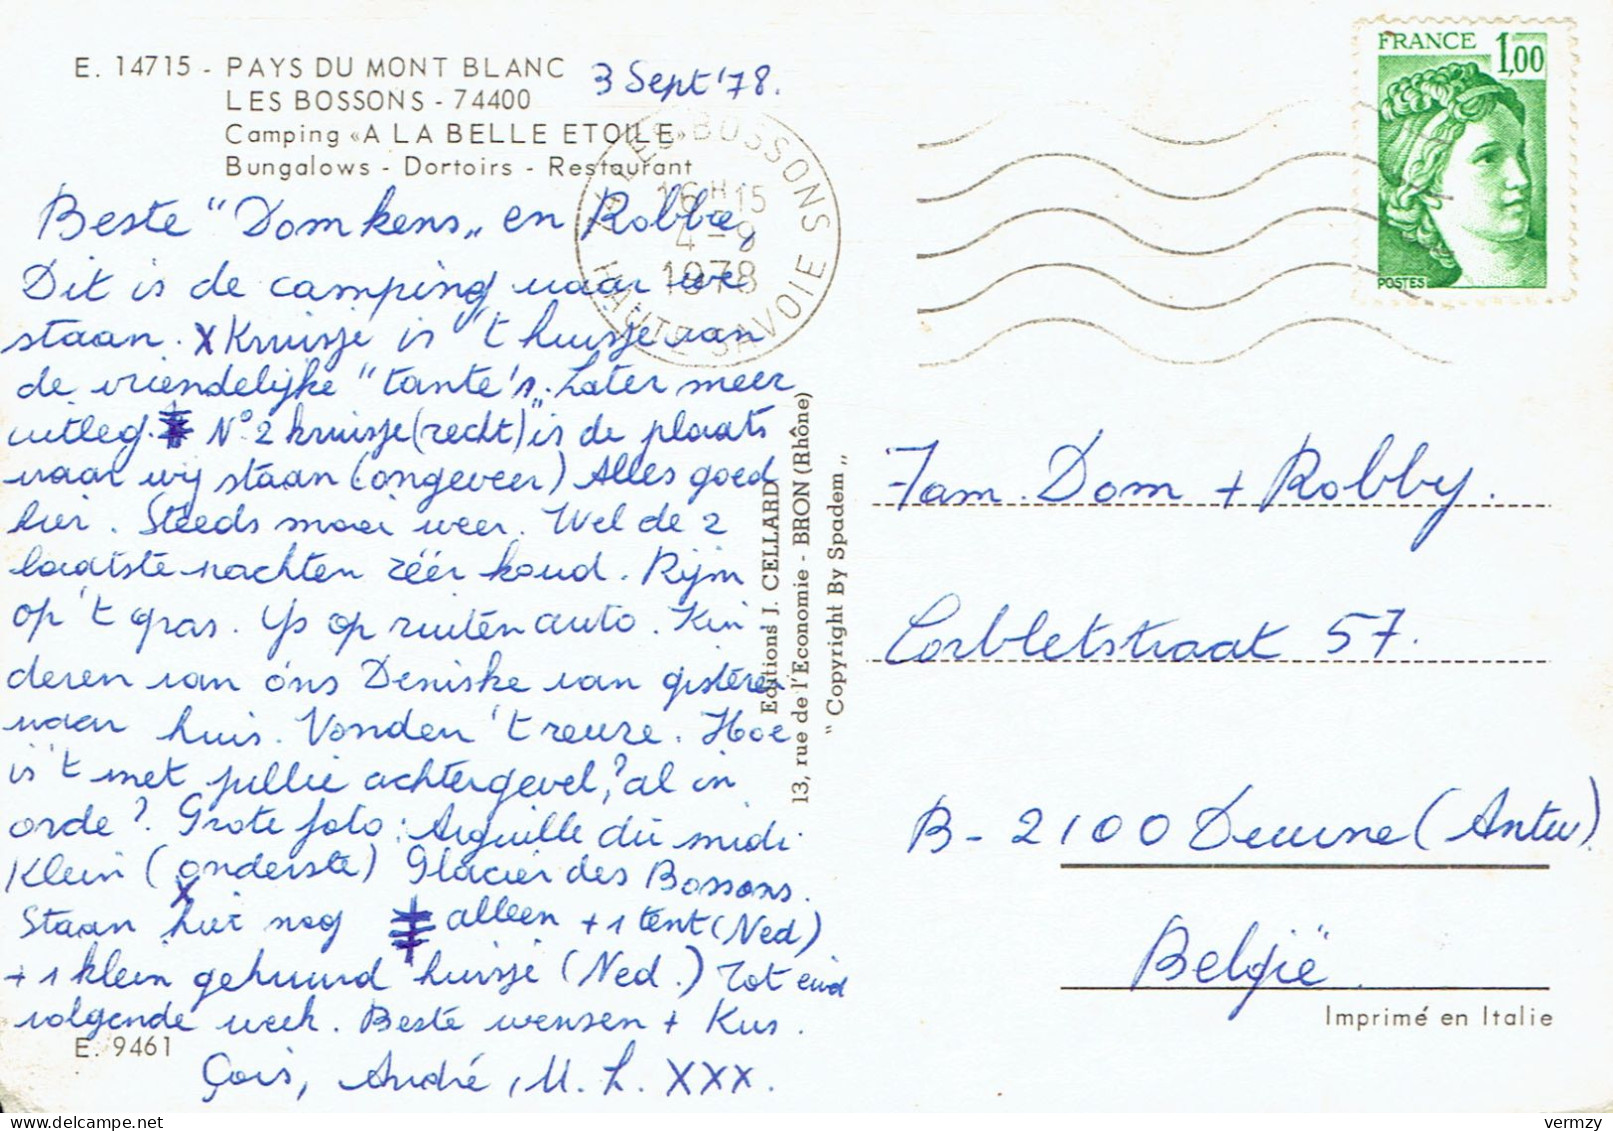 E. 14715 - PAYS DU MONT BLANC
LES BOSSONS - 74400
Camping «A LA BELLE ETOILE»
Bungalows - Dortoirs - Restaurant
3 Sept '78.
Beste "Domkens„ en Robbe,
Dit is de camping waar we
staan. X Kruisje is 't huisje van
de vriendelijke "tante's„. Later meer
uitleg. N° 2 kruisje (recht) is de plaats
waar wij staan (ongeveer) Alles goed
hier. Steeds mooi weer. Wel de 2
laatste nachten zéér koud. Rijm
op 't gras. IJs op ruiten auto. Kin
deren van óns Deniske van gisteren
naar huis. Vonden 't reuze. Hoe
is 't met jullie achtergevel, al in
orde? Grote foto: Aiguille du midi
Klein (onderste) Glacier des Bossons.
X
Staan hier nog alleen + 1 tent (Ned)
+ 1 klein gehuurd huisje (Ned.) Tot eind
volgende week. Beste wensen + Kus.
Çois, André, M. L. XXX.
E. 9461
74 LES BOSSONS
16 H 15
4 - 9
1978
HAUTE SAVOIE
Editions J. CELLARD
13, rue de l'Economie - BRON (Rhône)
"Copyright By Spadem„
FRANCE 1,00
POSTES
Fam. Dom + Robby.
Corbletstraat 57.
B - 2100 Deurne (Antw)
België.
Imprimé en Italie
vermzy